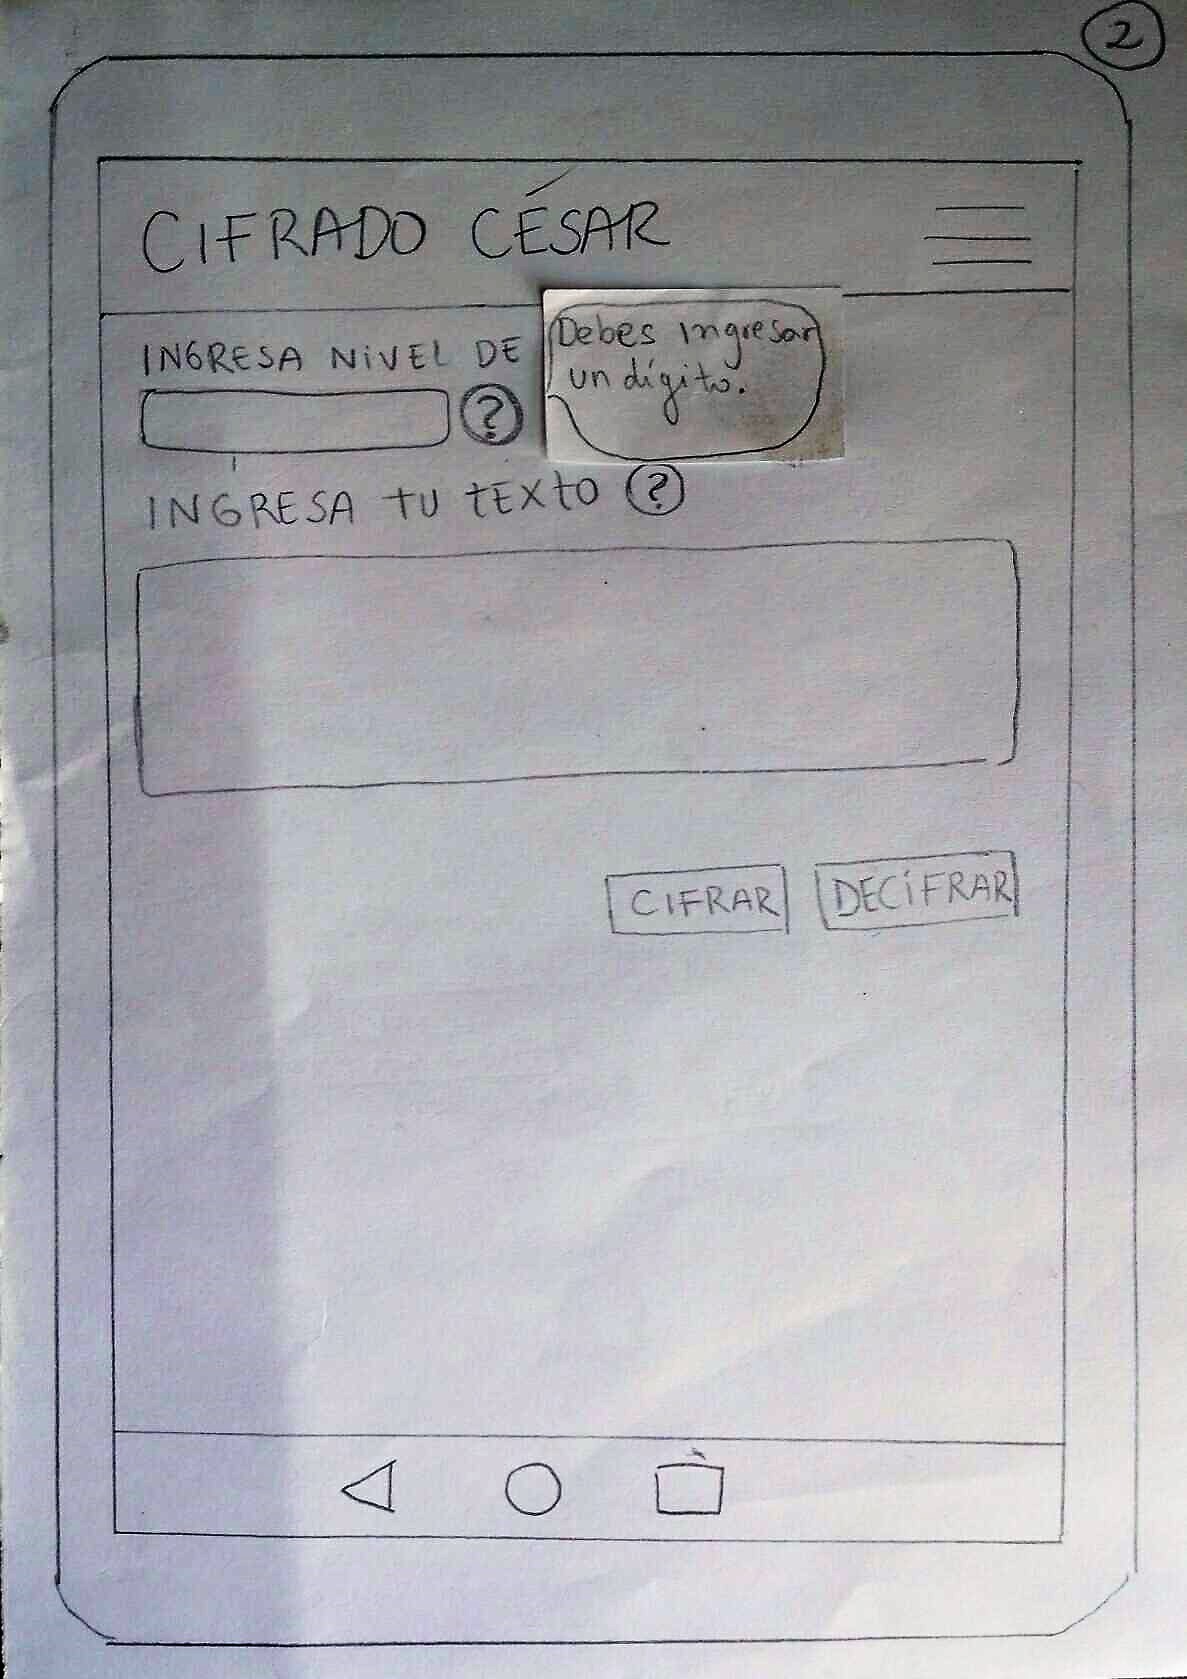 2
CIFRADO CÉSAR
INGRESA NIVEL DE
Debes ingresar
un dígito.
?
INGRESA TU TEXTO ?
CIFRAR DECIFRAR